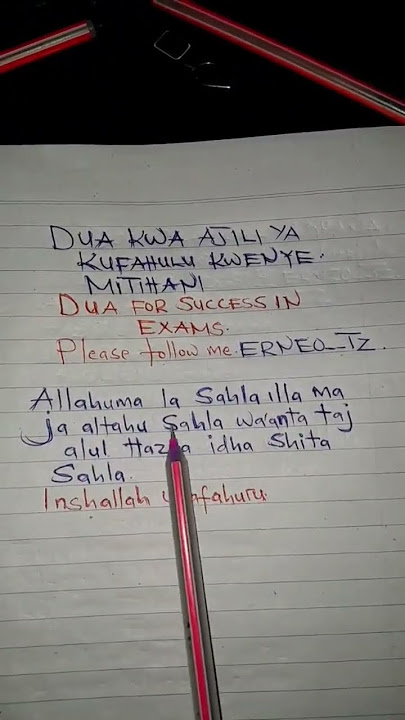 DUA KWA AJILI YA
KUFAHULU KWENYE.
MITIHANI
DUA FOR SUCCESS IN
EXAMS.
Please follow me. ERNEO_TZ.
Allahuma la Sahla illa ma
ja altahu Sahla wa'anta taj
alul Hazna idha Shita
Sahla.
Inshallah